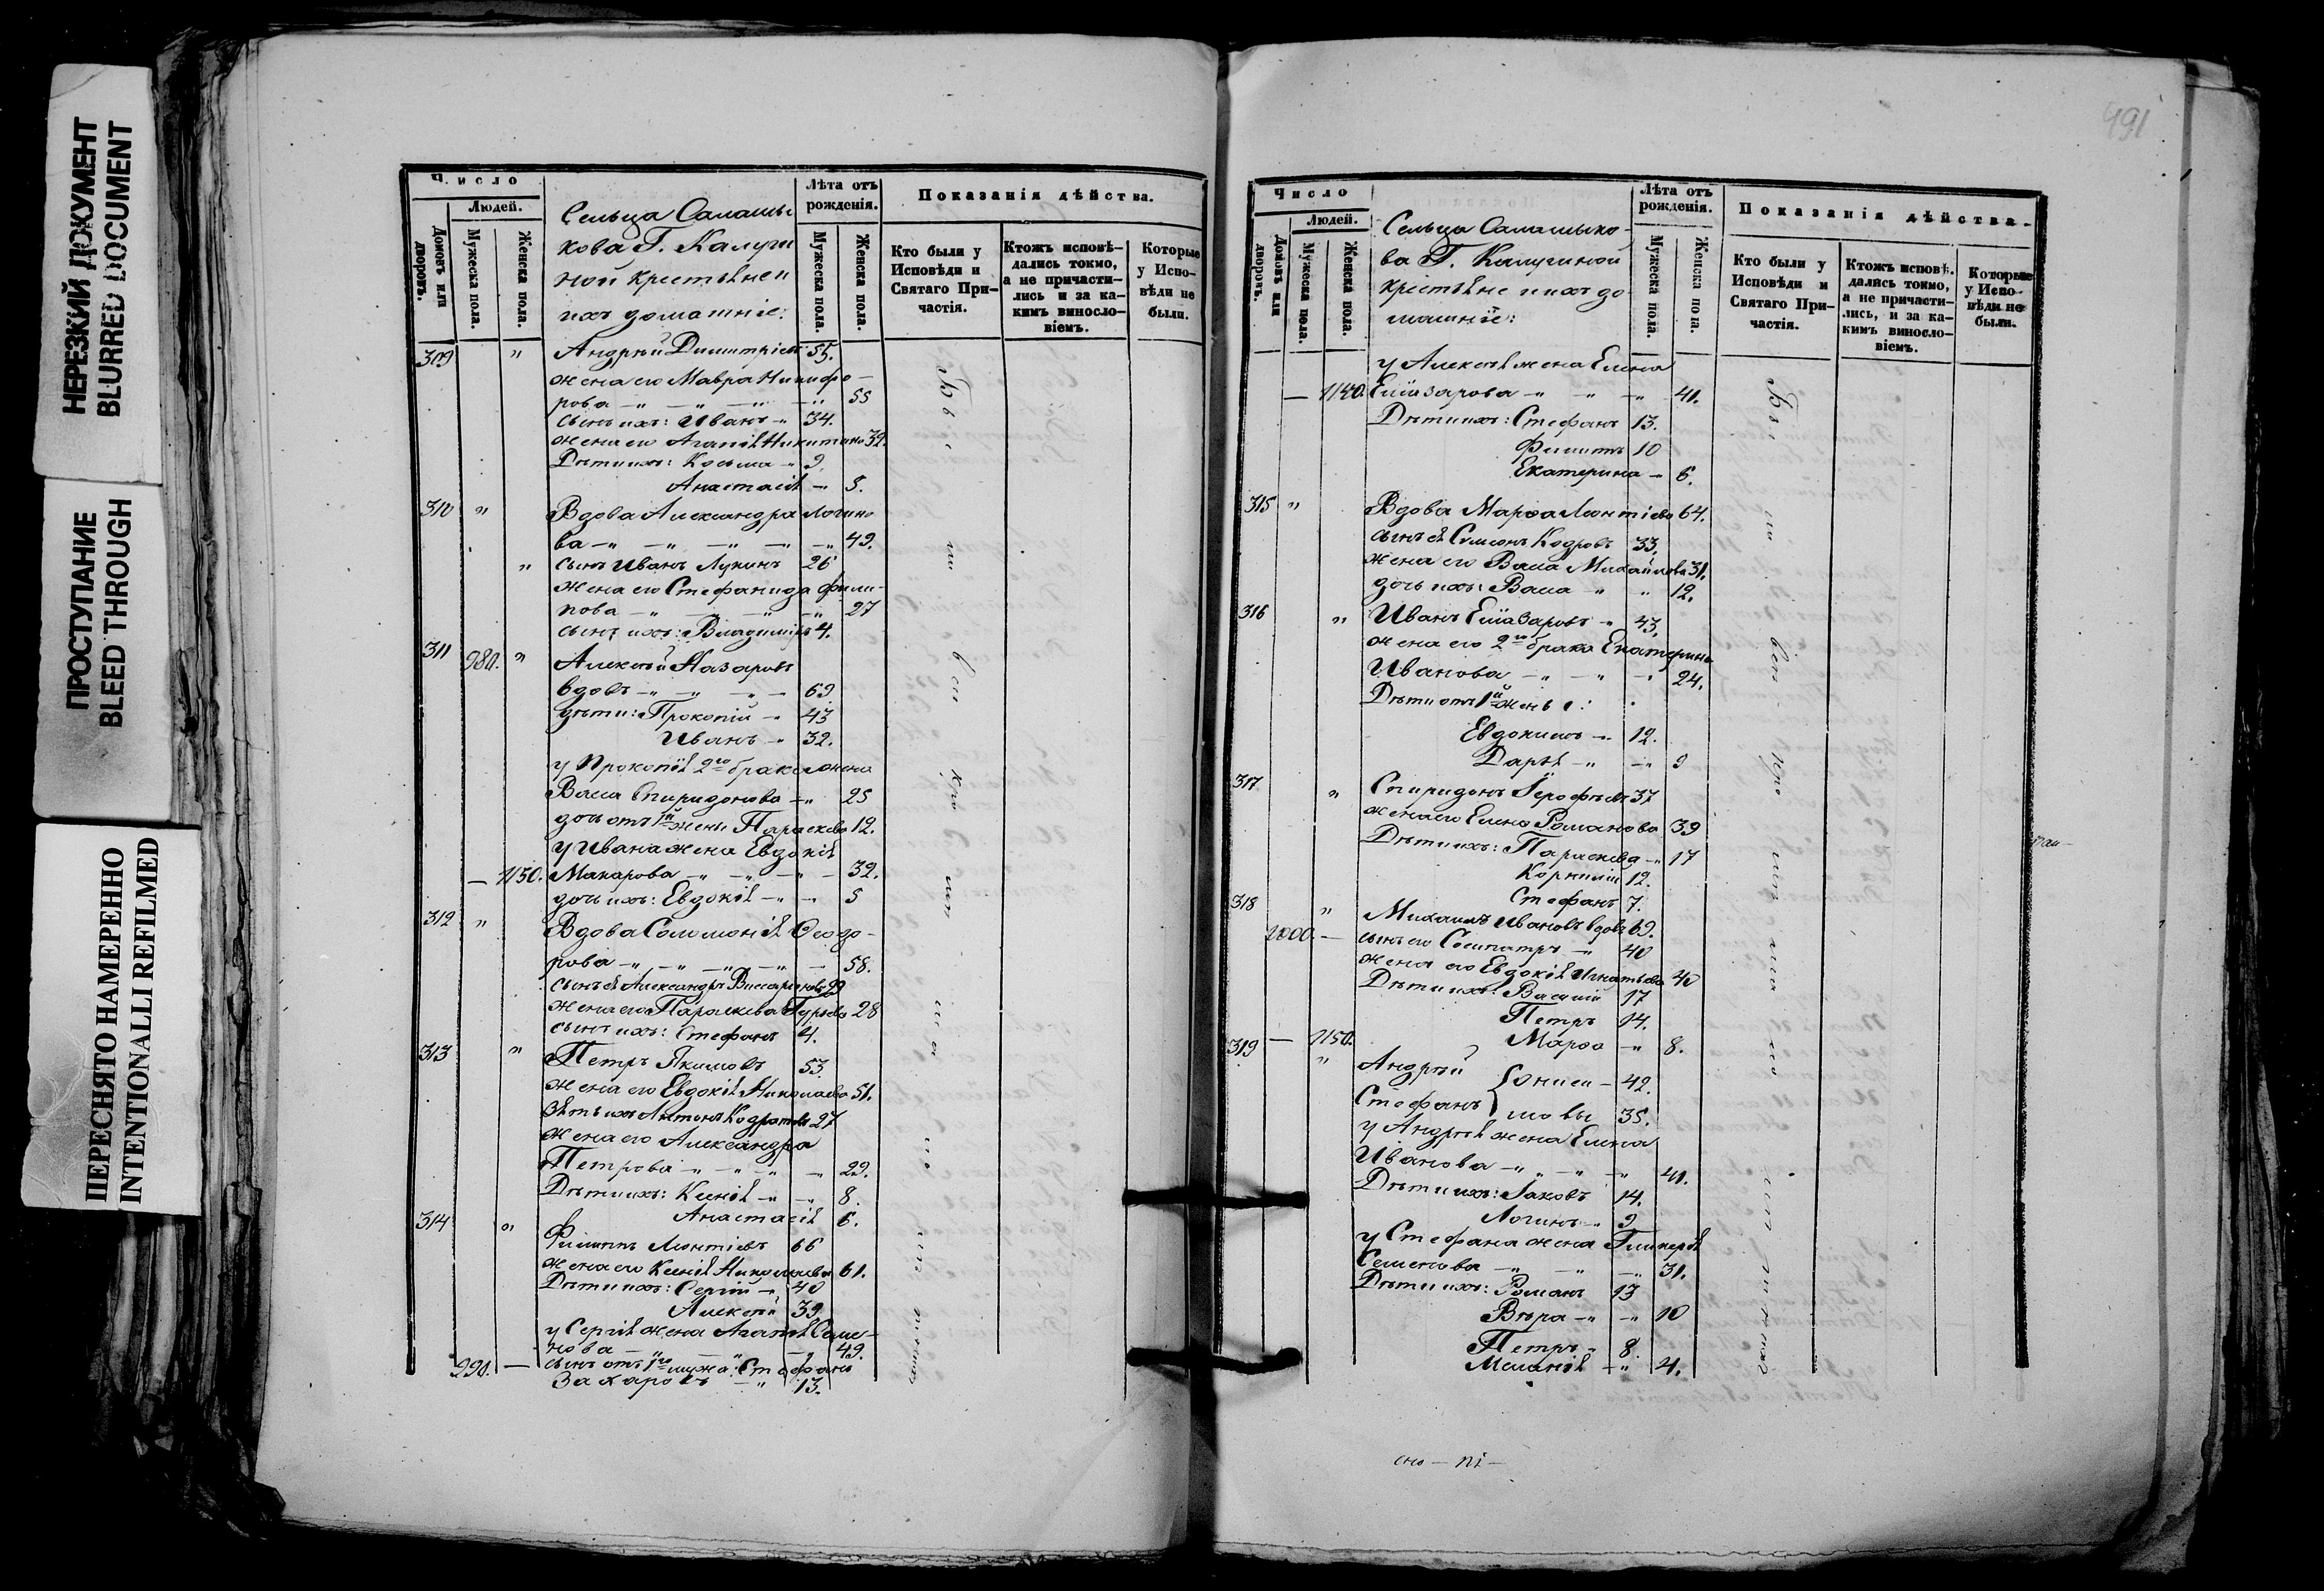 НЕРЕЗКИЙ ДОКУМЕНТ
BLURRED DOCUMENT
ПРОСТУПАНИЕ
BLEED THROUGH
ПЕРЕСНЯТО НАМЕРЕННО
INTENTIONALLI REFILMED
Число
Людей.
Домовъ или дворовъ.
Мужеска пола.
Женска пола.
Сельца Саламы
кова Г. Калуги
ной крестьяне и
ихъ домашніе:
Лѣта отъ рожденія.
Мужеска пола.
Женска пола.
Показанія дѣйства.
Кто были у Исповѣди и Святаго Причастія.
Ктожъ исповѣдались токмо, а не причастились и за какимъ винословіемъ.
Которые у Исповѣди не были.
309 " Андрей Димитріевъ 55.
жена его Мавра Никифо-
рова 55
сынъ ихъ: Иванъ 34.
жена его Агапія Никитина 32.
Дѣти ихъ: Косьма 9.
Анастасія 5.
310 " Вдова Александра Логино
ва 49.
" сынъ Иванъ Лукинъ 26
жена его Стефанида Фили-
пова 27
сынъ ихъ: Владиміръ 4.
311 980. " Алексѣй Назаровъ
вдовъ 69
дѣти: Прокопій 43
Иванъ 32.
у Прокопія 2го брака жена
Васса Спиридонова 25
дочь отъ 1й жены Параскева 12.
у Ивана жена Евдокія
— 1130. Макарова 32.
дочь ихъ: Евдокія 5
312 " Вдова Соломонія Ѳеодо-
рова 58.
сынъ ея Александръ Виссаріоновъ 29
жена его Параскева Гурьева 28
сынъ ихъ: Стефанъ 4.
313 " Петръ Якимовъ 53.
жена его Евдокія Николаева 51.
Зять ихъ Антонъ Кодратьевъ 27
жена его Александра
Петрова 29.
Дѣти ихъ: Ксенія 8.
Анастасія 6.
314 " Филиппъ Леонтіевъ 66
жена его Ксенія Николаева 61.
Дѣти ихъ: Сергій 40
Алексѣй 39.
у Сергія жена Агапія Семе-
нова 49.
990. — сынъ отъ 1го мужа: Стефанъ
Захаровъ 13.
491
Число
Людей.
Домовъ или дворовъ.
Мужеска пола.
Женска пола.
Сельца Саламыко-
ва Г. Калугиной
крестьяне и ихъ до
машніе:
Лѣта отъ рожденія.
Мужеска пола.
Женска пола.
Показанія дѣйства.
Кто были у Исповѣди и Святаго Причастія.
Ктожъ исповѣдались токмо, а не причастились, и за какимъ винословіемъ.
Которые у Исповѣди не были.
у Алексѣя жена Елена
— 1140. Елиазарова 41.
Дѣти ихъ: Стефанъ 13.
Филиппъ 10
Екатерина 6.
315 " Вдова Марѳа Леонтіева 64.
сынъ ея Симеонъ Кодровъ 33.
жена его Васса Михайлова 31.
дочь ихъ: Васса 12.
316 " Иванъ Елиазаровъ 43.
жена его 2го брака Екатерина
Иванова 24.
Дѣти отъ 1й жены:
Евдокимъ 12.
Дарья 9
317 " Спиридонъ Іерофѣевъ 37
жена его Елена Романова 39
Дѣти ихъ: Параскева 17
Корнилій 12.
Стефанъ 7.
318 " Михаилъ Ивановъ вдовъ 69.
1000. — сынъ его Сосипатръ 40
жена его Евдокія Игнатьева 40
Дѣти ихъ: Василій 17
Петръ 14.
— 1150. Марѳа 8.
319 " Андрей Онисимовы 42.
Стефанъ 35.
у Андрея жена Елена
Иванова 41.
Дѣти ихъ: Іаковъ 14.
Логинъ 9
у Стефана жена Гликерія
Семенова 31.
Дѣти ихъ: Романъ 13
Вѣра 10
Петръ 8.
Меланія 4.